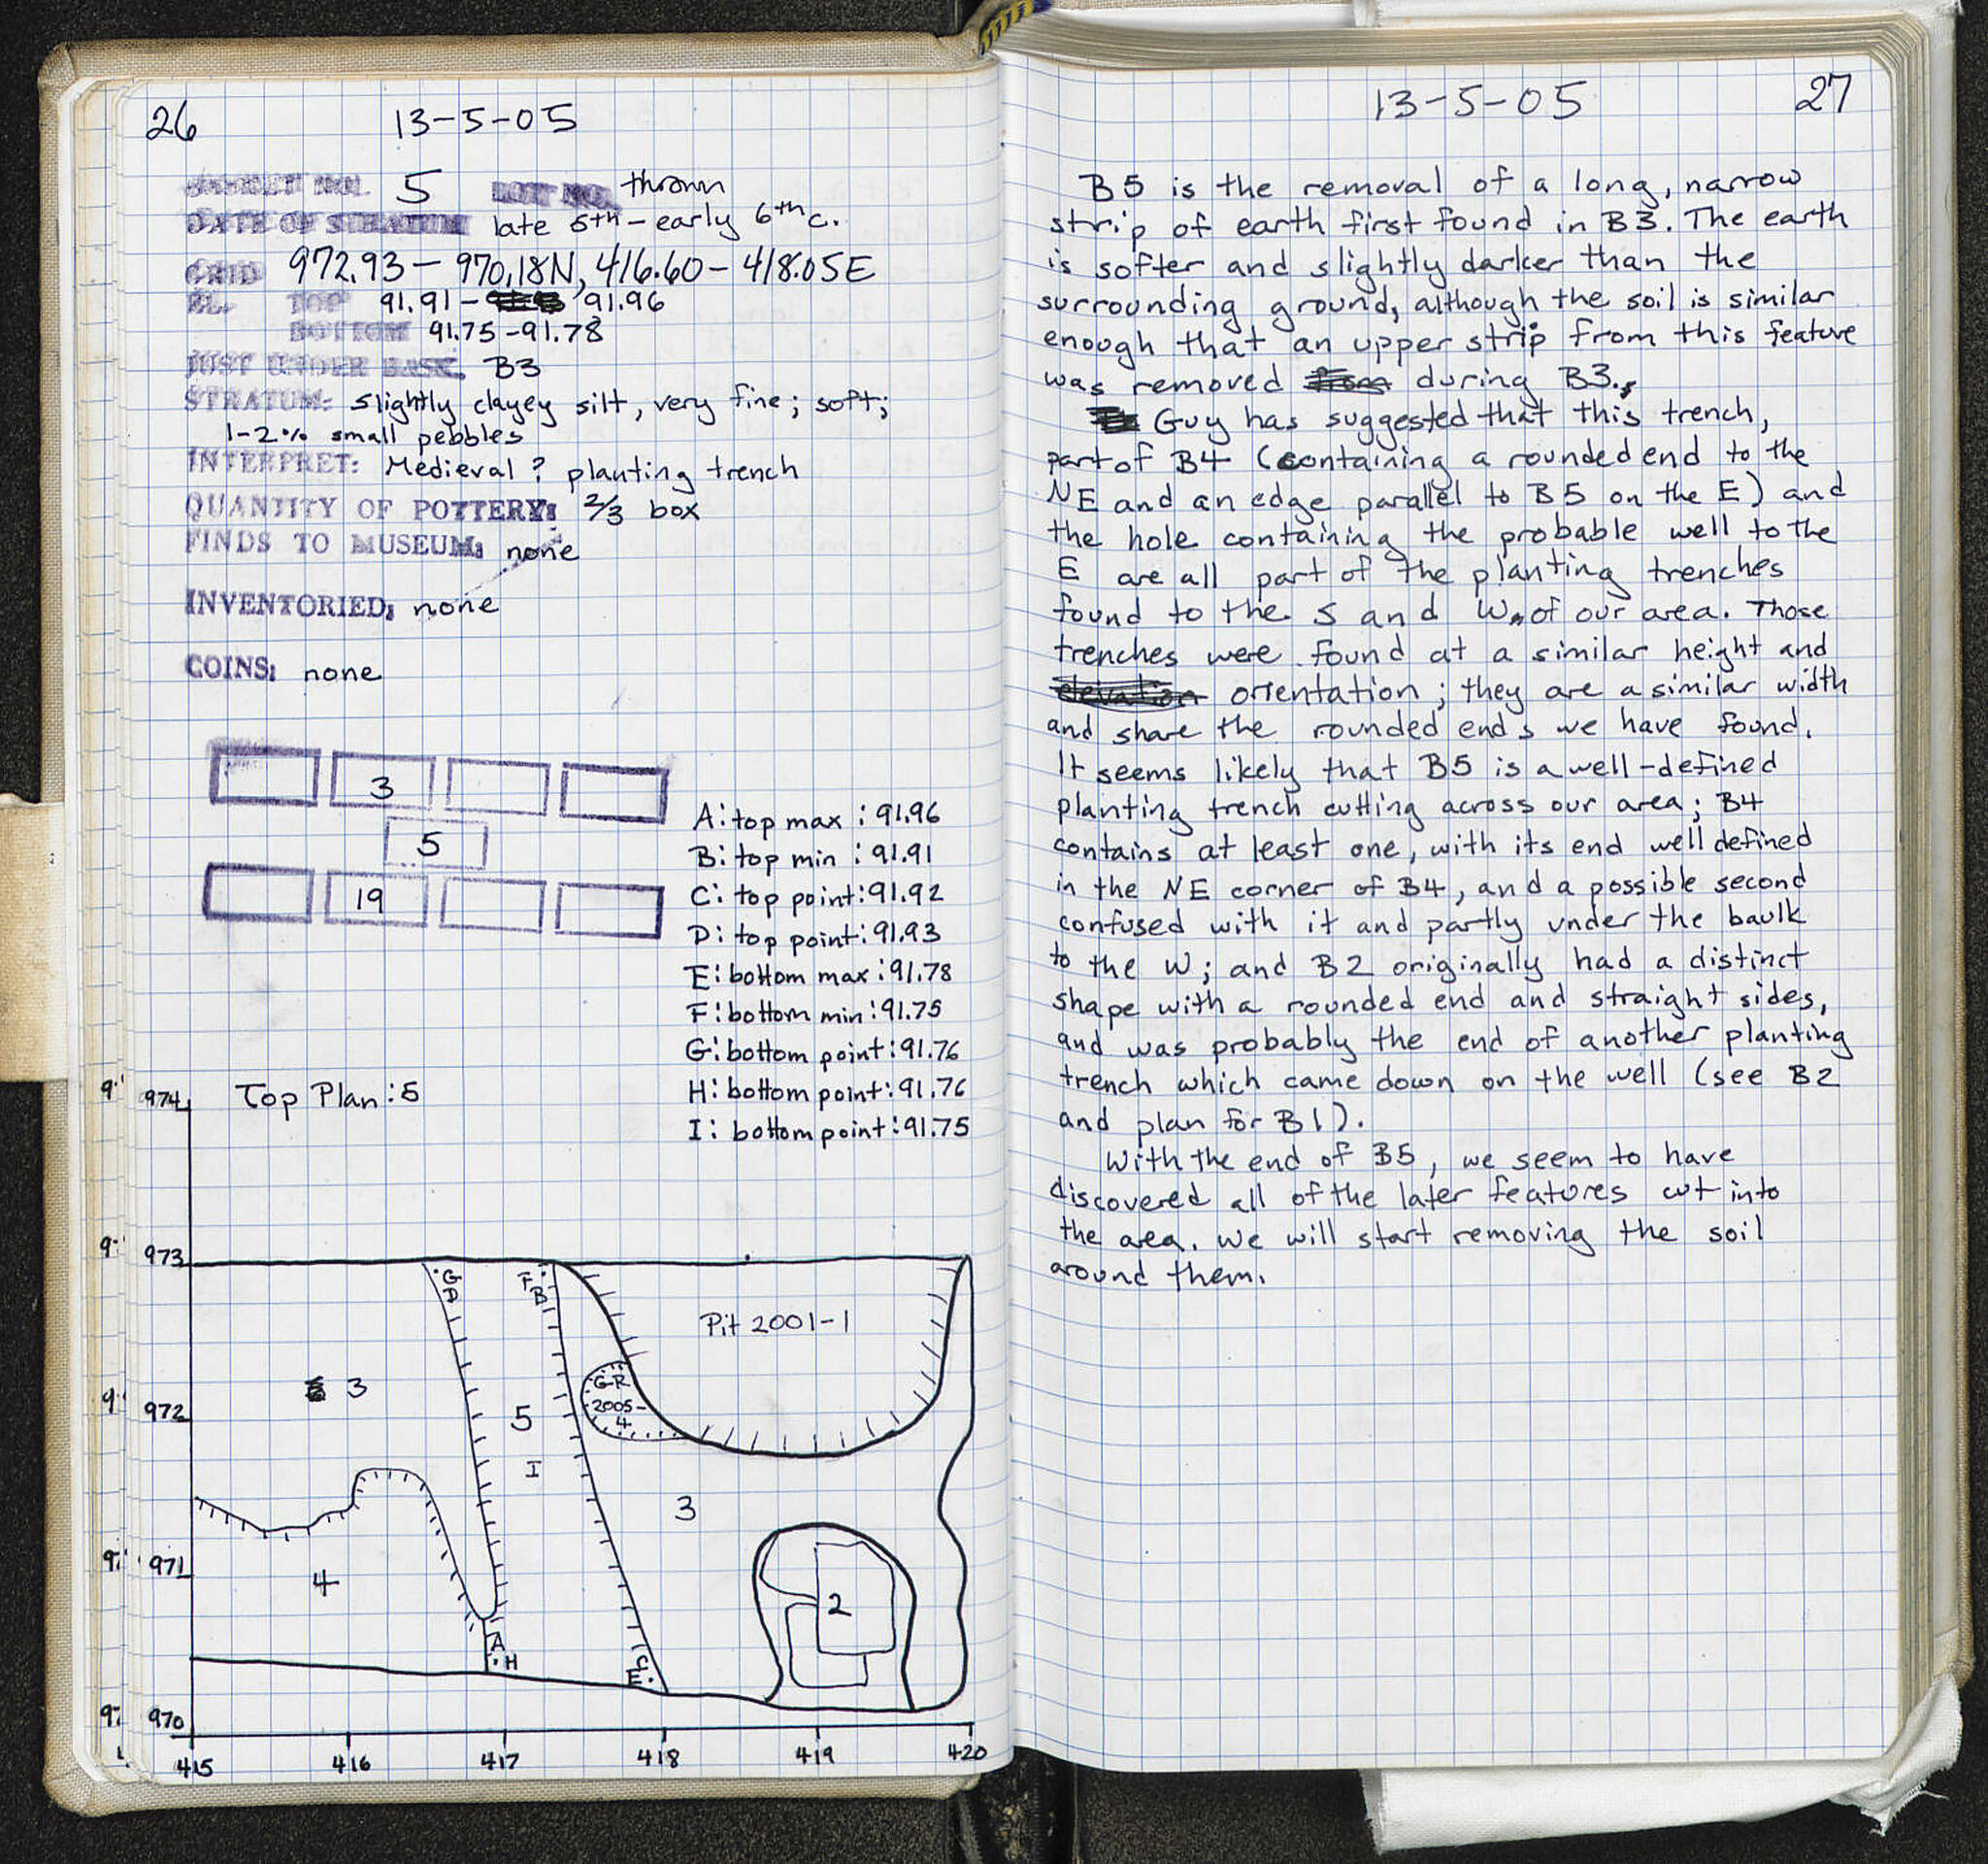 26
13-5-05
BASKET NO. 5 LOT NO. thrown
DATE OF STRATUM late 5th - early 6th c.
GRID 972.93 - 970.18N, 416.60 - 418.05E
EL. TOP 91.91 - 91.96
BOTTOM 91.75 - 91.78
JUST UNDER BASK. B3
STRATUM: slightly clayey silt, very fine; soft;
1-2% small pebbles
INTERPRET: Medieval? planting trench
QUANTITY OF POTTERY: 2/3 box
FINDS TO MUSEUM: none
INVENTORIED: none
COINS: none
3
5
19
A: top max : 91.96
B: top min : 91.91
C: top point: 91.92
D: top point: 91.93
E: bottom max: 91.78
F: bottom min: 91.75
G: bottom point: 91.76
H: bottom point: 91.76
I: bottom point: 91.75
Top Plan: 5
974
973
972
971
970
G
D
F
B
Pit 2001-1
3
GR
2005-
4
5
I
3
4
2
A
H
C
E
415 416 417 418 419 420
13-5-05
27
B5 is the removal of a long, narrow
strip of earth first found in B3. The earth
is softer and slightly darker than the
surrounding ground, although the soil is similar
enough that an upper strip from this feature
was removed from during B3.
Guy has suggested that this trench,
part of B4 (containing a rounded end to the
NE and an edge parallel to B5 on the E) and
the hole containing the probable well to the
E are all part of the planting trenches
found to the S and W of our area. Those
trenches were found at a similar height and
elevation orientation; they are a similar width
and share the rounded ends we have found.
It seems likely that B5 is a well-defined
planting trench cutting across our area; B4
contains at least one, with its end well defined
in the NE corner of B4, and a possible second
confused with it and partly under the baulk
to the W; and B2 originally had a distinct
shape with a rounded end and straight sides,
and was probably the end of another planting
trench which came down on the well (see B2
and plan for B1).
With the end of B5, we seem to have
discovered all of the later features cut into
the area. We will start removing the soil
around them.